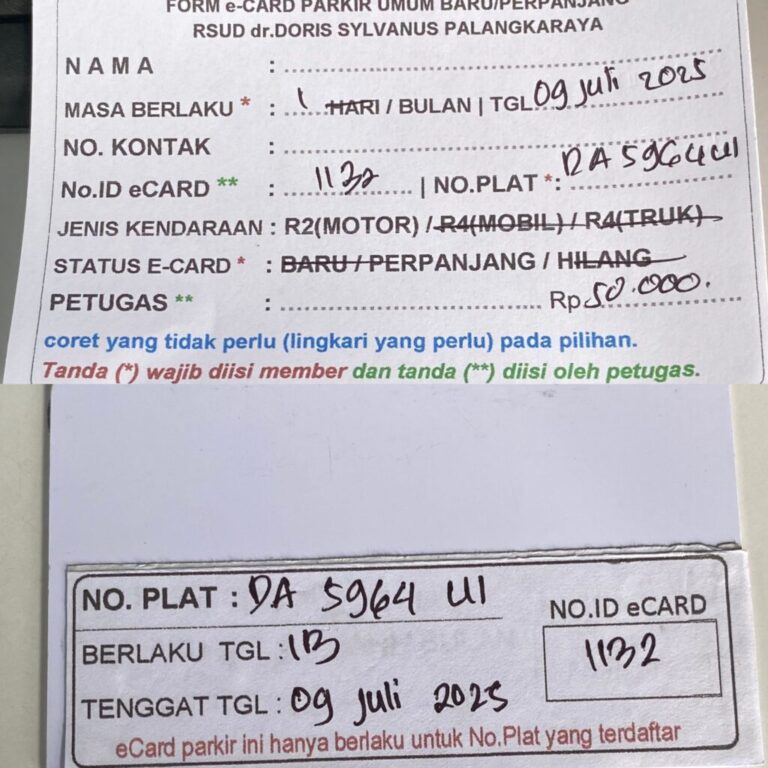 FORM e-CARD PARKIR UMUM BARU/PERPANJANG
RSUD dr.DORIS SYLVANUS PALANGKARAYA
NAMA : 
MASA BERLAKU * : 1 HARI / BULAN | TGL 09 Juli 2025
NO. KONTAK : 
No.ID eCARD ** : 1132 | NO.PLAT *: DA 5964 UI
JENIS KENDARAAN : R2(MOTOR) / R4(MOBIL) / R4(TRUK)
STATUS E-CARD * : BARU / PERPANJANG / HILANG
PETUGAS ** : Rp 50.000.
coret yang tidak perlu (lingkari yang perlu) pada pilihan.
Tanda (*) wajib diisi member dan tanda (**) diisi oleh petugas.
NO. PLAT : DA 5964 UI
NO.ID eCARD
BERLAKU TGL : 1B
1132
TENGGAT TGL : 09 Juli 2025
eCard parkir ini hanya berlaku untuk No.Plat yang terdaftar